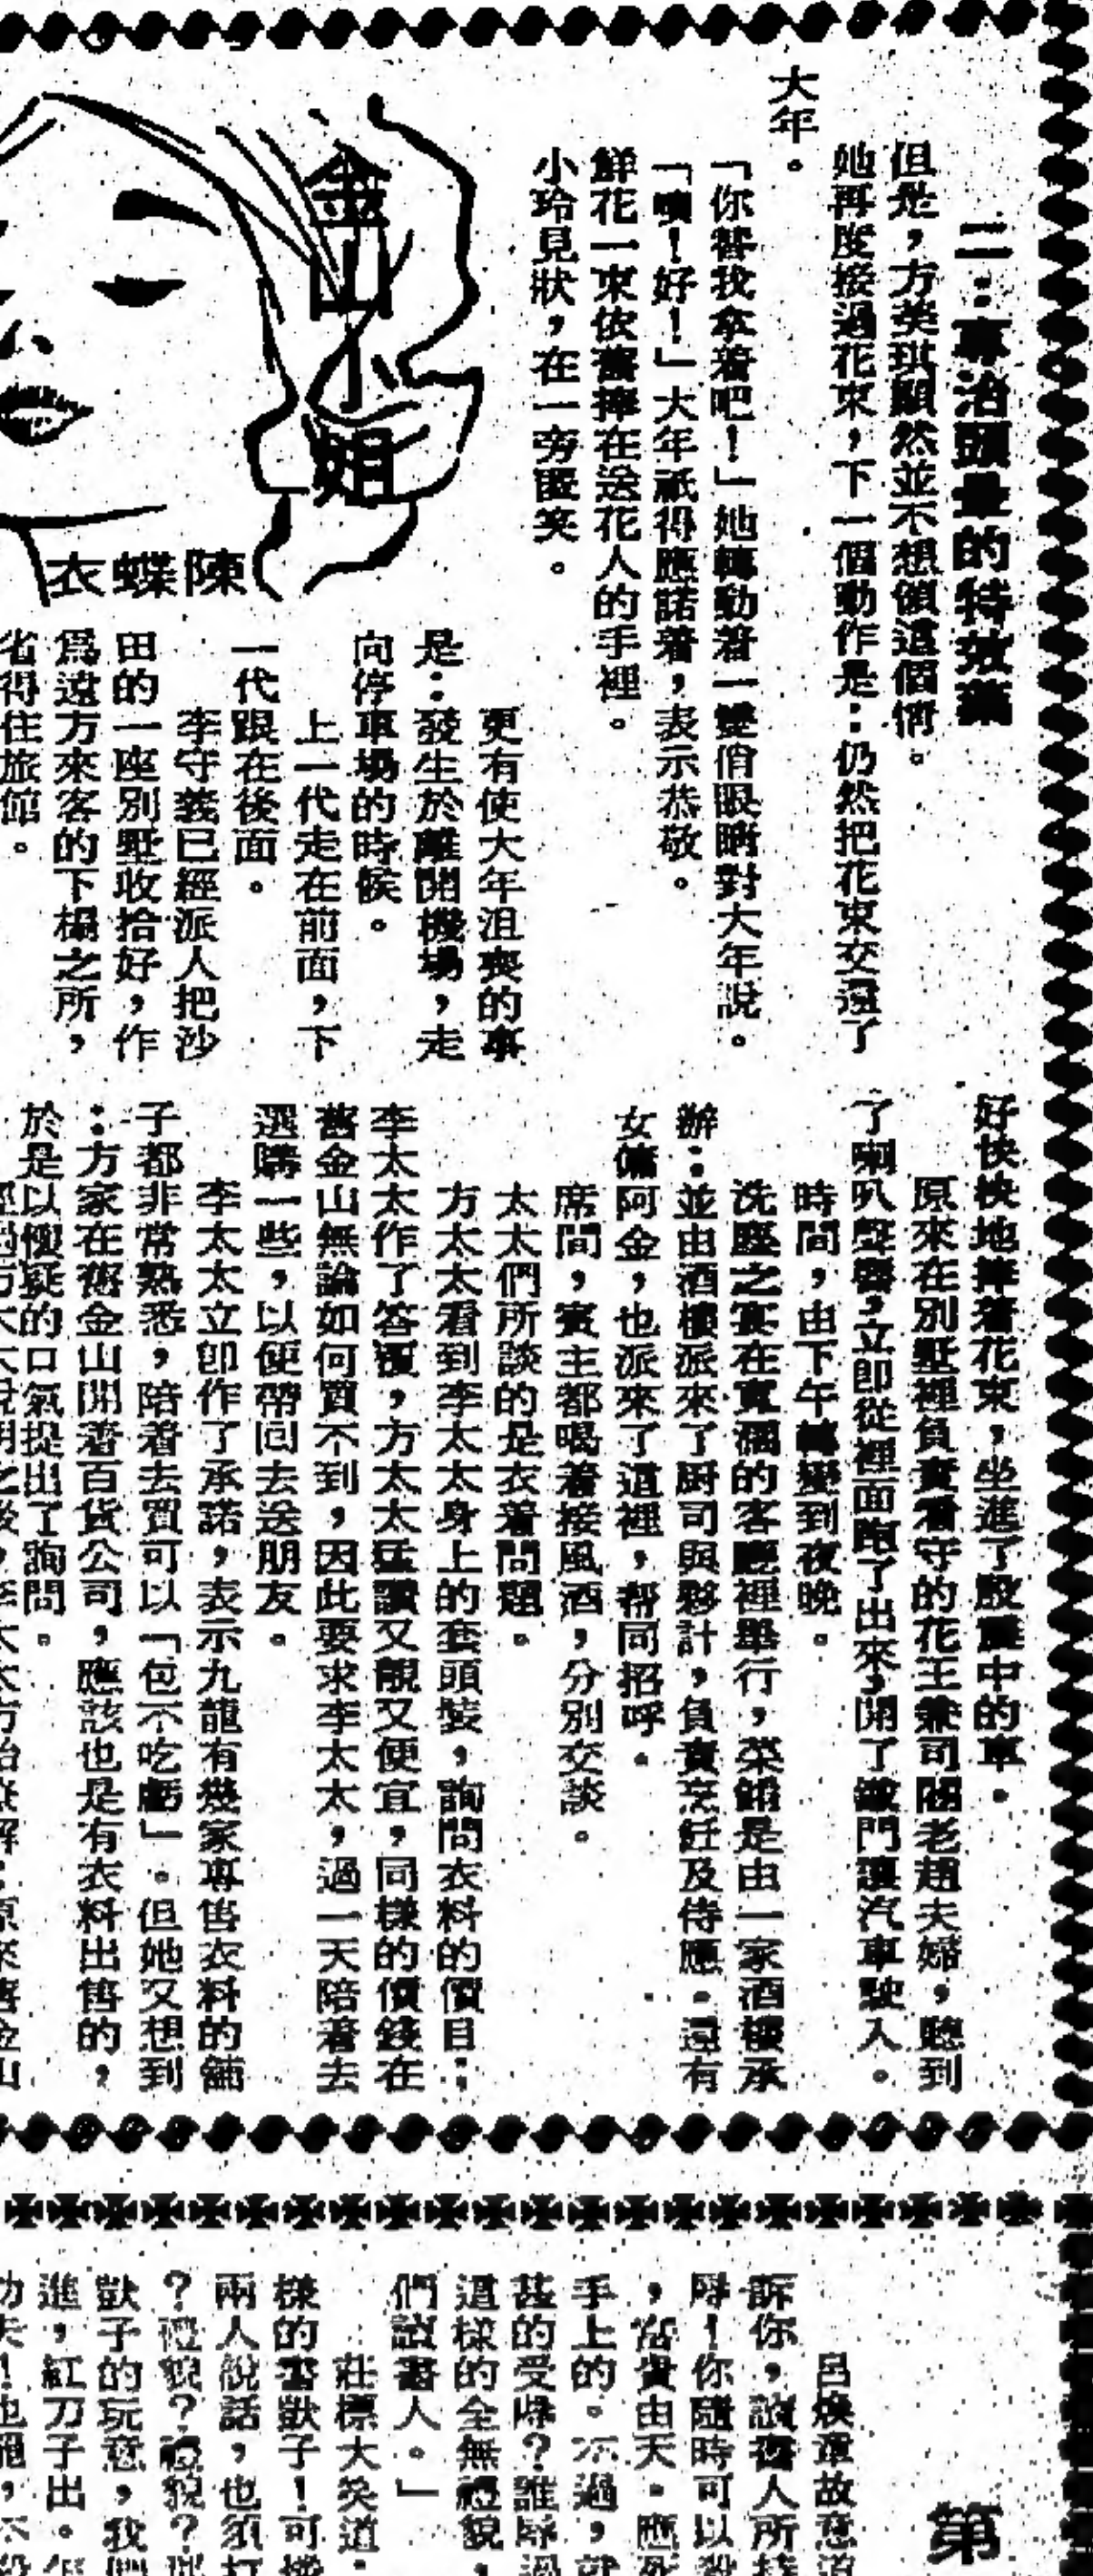 金山小姐
陳蝶衣
二：專治頭暈的特效藥
但是，方英琪顯然並不想領這個情。
她再度接過花束，下一個動作是：仍然把花束交還了
大年。
「你替我拿着吧！」她轉動着一雙俏眼睛對大年說。
「噢！好！」大年祇得應諾着，表示恭敬。
鮮花一束依舊捧在送花人的手裡。
小玲見狀，在一旁匿笑。
更有使大年沮喪的事
是：發生於離開機場，走
向停車場的時候。
上一代走在前面，下
一代跟在後面。
李守義已經派人把沙
田的一座別墅收拾好，作
爲遠方來客的下榻之所，
省得住旅館。
好怏怏地捧着花束，坐進了殿後中的車。
原來在別墅裡負責看守的花王兼司閽老趙夫婦，聽到
了喇叭聲響，立即從裡面跑了出來，開了鐵門讓汽車駛入。
時間，由下午轉變到夜晚。
洗塵之宴在寬濶的客廳裡舉行，菜餚是由一家酒樓承
辦：並由酒樓派來了厨司與夥計，負責烹飪及侍應。還有
女傭阿金，也派來了這裡，帮同招呼。
席間，賓主都喝着接風酒，分別交談。
太太們所談的是衣着問題。
方太太看到李太太身上的套頭裝，詢問衣料的價目；
李太太作了答覆，方太太猛讚又靚又便宜，同樣的價錢在
舊金山無論如何買不到，因此要求李太太，過一天陪着去
選購一些，以便帶回去送朋友。
李太太立卽作了承諾，表示九龍有幾家專售衣料的舖
子都非常熟悉，陪着去買可以「包不吃虧」。但她又想到
：方家在舊金山開着百貨公司，應該也是有衣料出售的，
於是以懷疑的口氣提出了詢問。
第
呂煥章故意道
訴你，讀書人所持
！你隨時可以殺
，富貴由天。應死
手上的。不過，就
甚的受辱？誰辱過
這樣的全無禮貌，
們讀書人。」
莊標大笑道：
樣的書獃子！可
兩人說話，也須打
？禮貌？禮貌？
獃子的玩意，我們
進，紅刀子出。